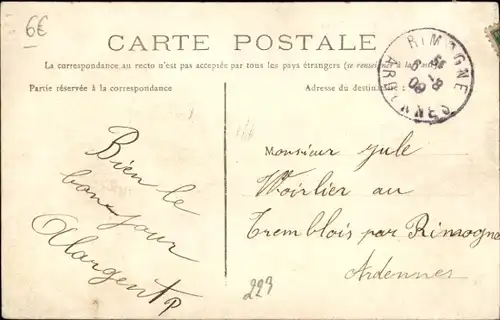 6€
CARTE POSTALE
La correspondance au recto n'est pas acceptée par tous les pays étrangers (se renseigner à la
Partie réservée à la correspondance
Adresse du destinataire
RIMOGNE
ARDENNES
Bien le
bonjour
Monsieur Jule
Woirlier au
Tremblois par Rimogne
Ardennes
223